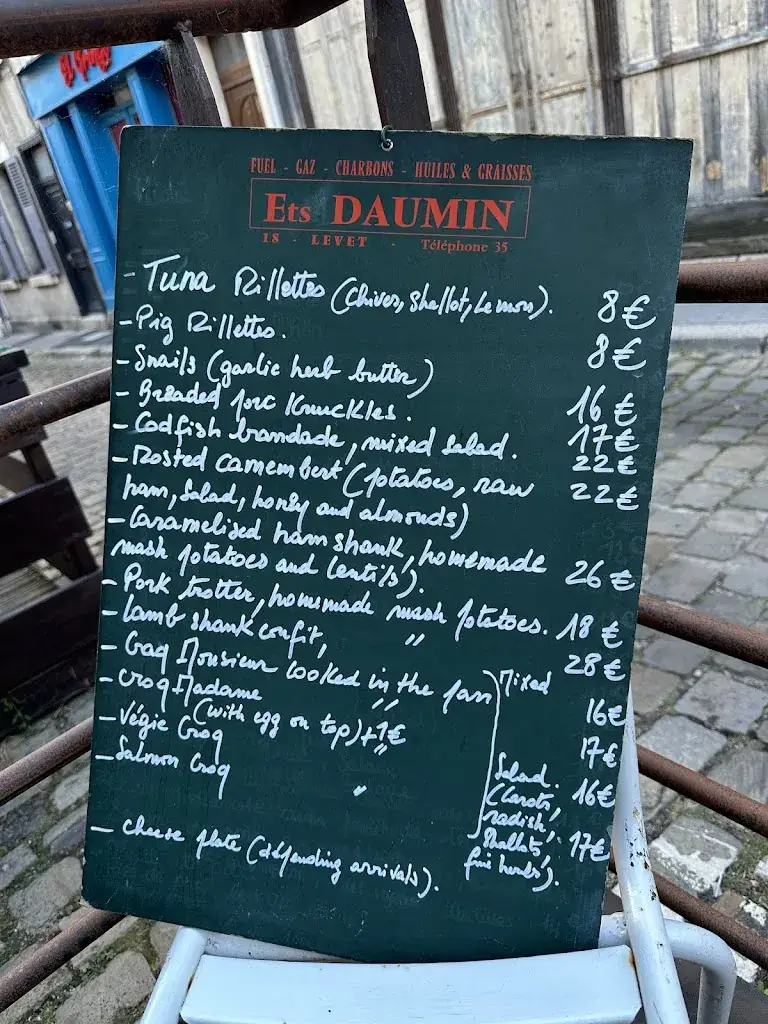 FUEL - GAZ - CHARBONS - HUILES & GRAISSES
Ets DAUMIN
18 - LEVET - Téléphone 35
- Tuna Rillettes (chives, shallot, Lemon). 8€
- Pig Rillettes. 8€
- Snails (garlic herb butter) 16€
- Breaded porc Knuckles. 17€
- Codfish brandade, mixed salad. 22€
- Rosted camembert (potatoes, raw 22€
ham, salad, honey and almonds)
- Caramelised ham shank, homemade 26€
mash potatoes and lentils).
- Pork trotter, homemade mash potatoes. 18€
- Lamb shank confit, " 28€
- Croq Monsieur cooked in the pan 16€
- Croq Madame " 17€
(with egg on top) +1€
- Végie Croq " 16€
- Salmon Croq " 17€
Mixed
Salad.
(Carots,
radish,
shallots,
fine herbs).
- cheese plate (depending arrivals).